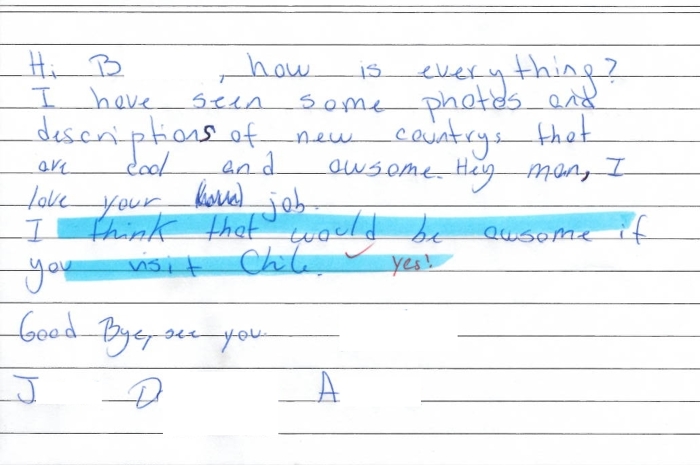 Hi B , how is everything?
I have seen some photos and
descriptions of new countrys that
are cool and awsome. Hey man, I
love your job.
I think that would be awsome if
you visit Chile. ✓ Yes!
Good Bye, see you.
J D A